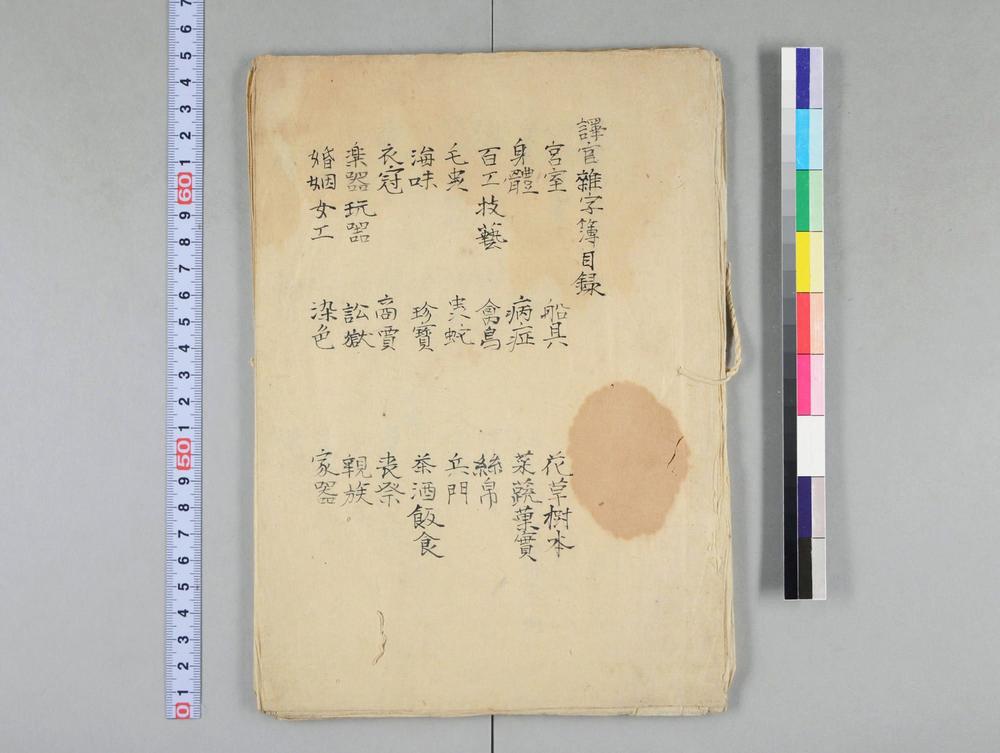 譯官雜字簿目録
宮室 船具 花草樹木
身體 病症 菜蔬菓實
百工技藝 禽鳥 絲帛
毛虫 虫蛇 兵門
海味 珍寶 茶酒飯食
衣冠 商賈 喪祭
楽器玩器 訟獄 親族
婚姻女工 染色 家器
7 6 5 4 3 2 1 60 9 8 7 6 5 4 3 2 1 50 9 8 7 6 5 4 3 2 1 0